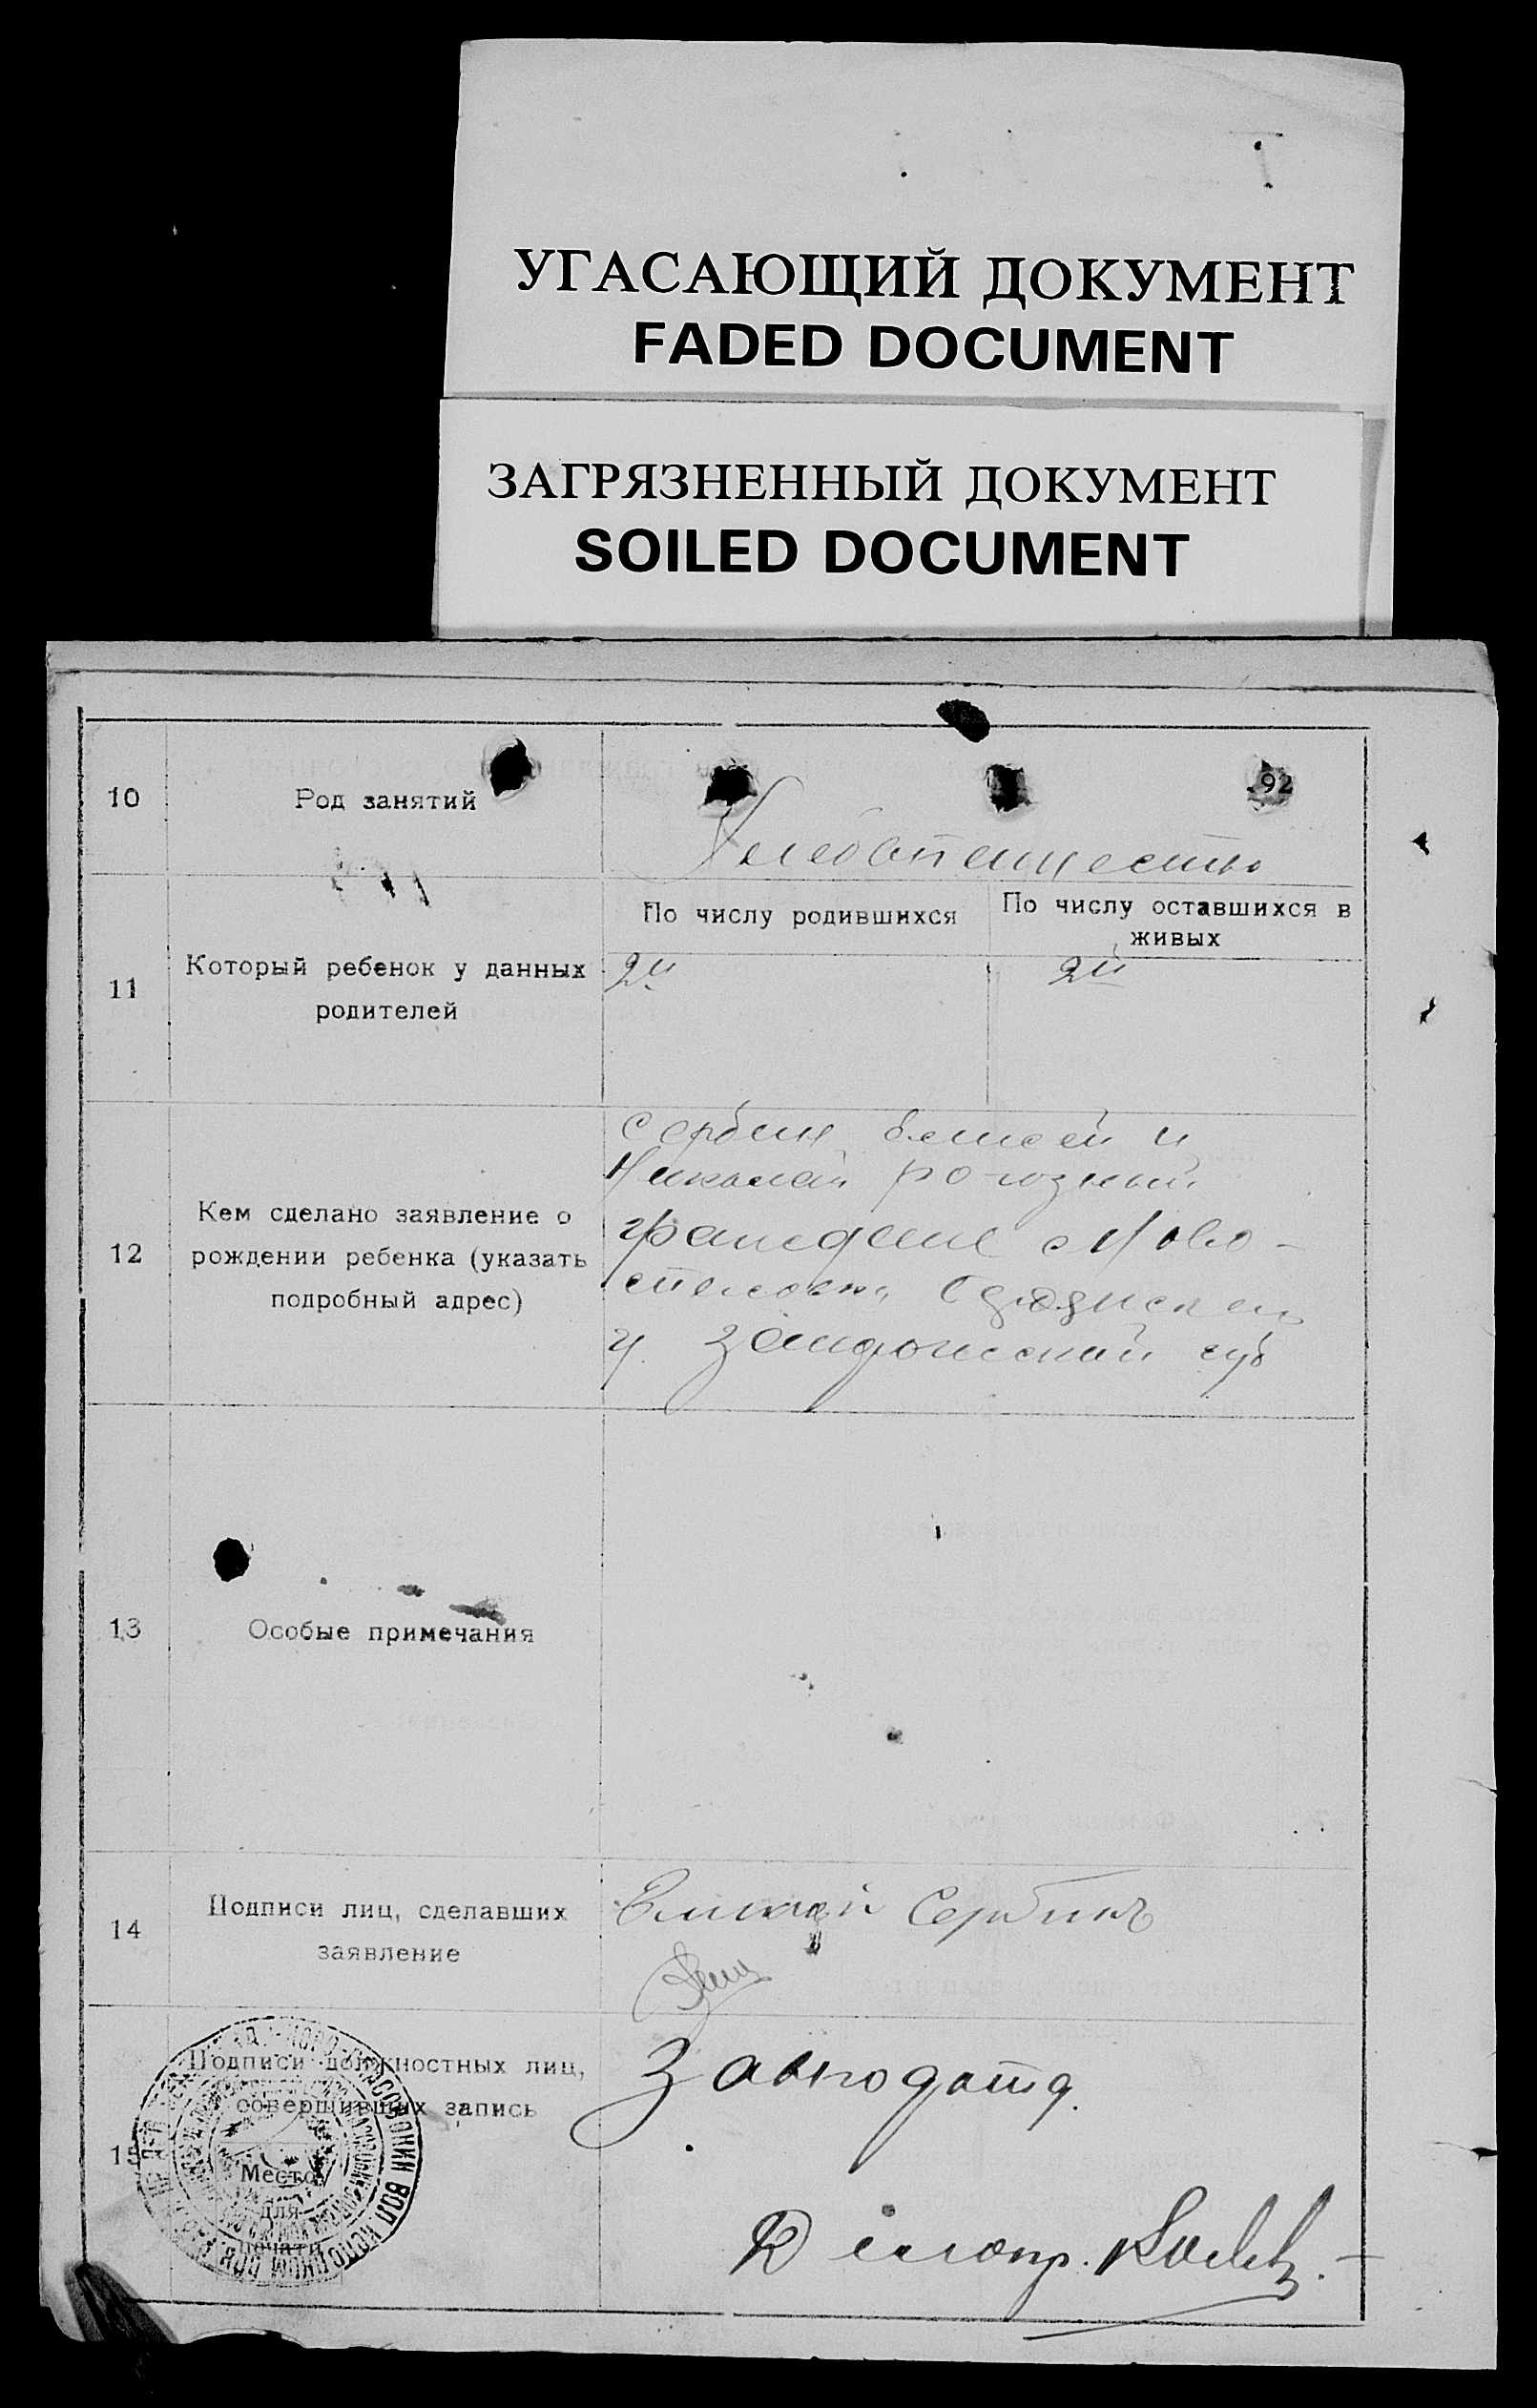 УГАСАЮЩИЙ ДОКУМЕНТ
FADED DOCUMENT
ЗАГРЯЗНЕННЫЙ ДОКУМЕНТ
SOILED DOCUMENT
92
10 Род занятий
Хлебопашество
11 Который ребенок у данных родителей
По числу родившихся
По числу оставшихся в
живых
2й
2й
12 Кем сделано заявление о
рождении ребенка (указать
подробный адрес)
Сербин Елисей и
Николай
граждане с Ново-
у. Запорожской губ
13 Особые примечания
14 Подписи лиц, сделавших
заявление
Елисей Сербинъ
15 Подписи должностных лиц,
совершивших запись
Место
для
печати
Завподотд.
Делопр.